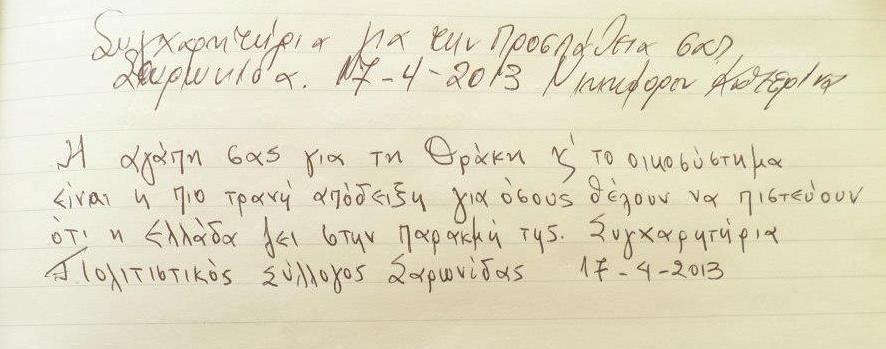 Συγχαρητήρια για την προσπάθεια σας,
Σαρωνίδα. 17-4-2013 Νικηφόρου Κατερίνα
Η αγάπη σας για τη Θράκη κ' το οικοσύστημα
είναι η πιο τρανή απόδειξη για όσους θέλουν να πιστεύουν
ότι η Ελλάδα ζει στην παρακμή της. Συγχαρητήρια
Πολιτιστικός Σύλλογος Σαρωνίδας 17-4-2013